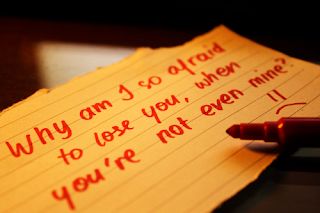 Why am I so afraid
to lose you, when
you're not even mine?